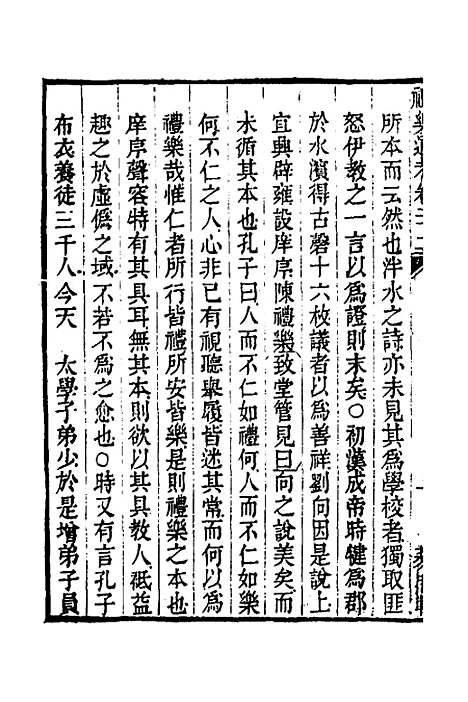 所本而云然也泮水之詩亦未見其為學校者獨取匪
怒伊教之一言以為證則末矣○初漢成帝時犍為郡
於水濱得古磬十六枚議者以為善祥劉向因是說上
宜興辟雍設庠序陳禮樂致堂管見曰向之說美矣而
未循其本也孔子曰人而不仁如禮何人而不仁如樂
何不仁之人心非已有視聽舉履皆迷其常而何以為
禮樂哉惟仁者所行皆禮所安皆樂是則禮樂之本也
庠序聲容特有其具耳無其本則欲以其具教人秪益
趣之於虛偽之域不若不為之愈也○時又有言孔子
布衣養徒三千人今天 太學子弟少於是增弟子員